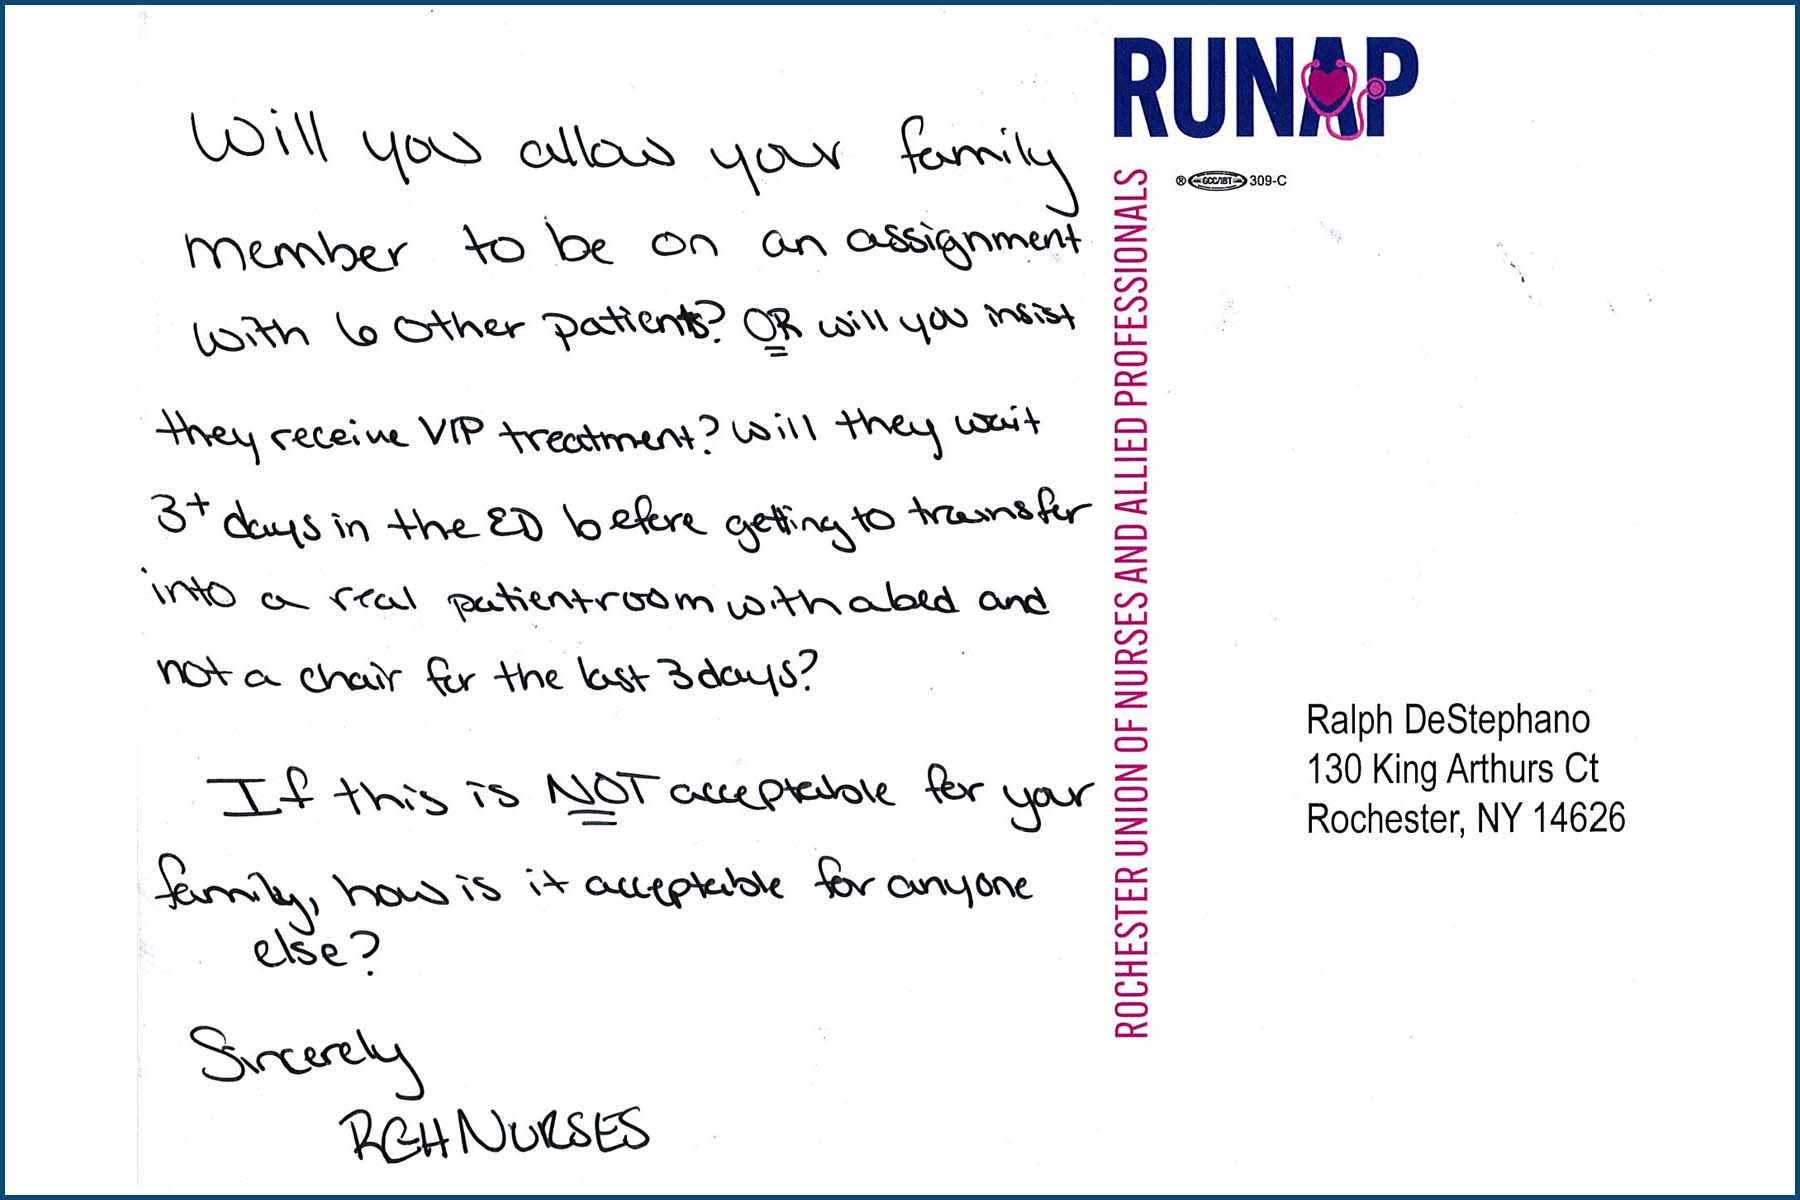 Will you allow your family
member to be on an assignment
with 6 other patients? OR will you insist
they receive VIP treatment? Will they wait
3+ days in the ED before getting to transfer
into a real patient room with a bed and
not a chair for the last 3 days?
If this is NOT acceptable for your
family, how is it acceptable for anyone
else?
Sincerely
RGH NURSES
RUNAP
® GCC/IBT 309-C
ROCHESTER UNION OF NURSES AND ALLIED PROFESSIONALS
Ralph DeStephano
130 King Arthurs Ct
Rochester, NY 14626